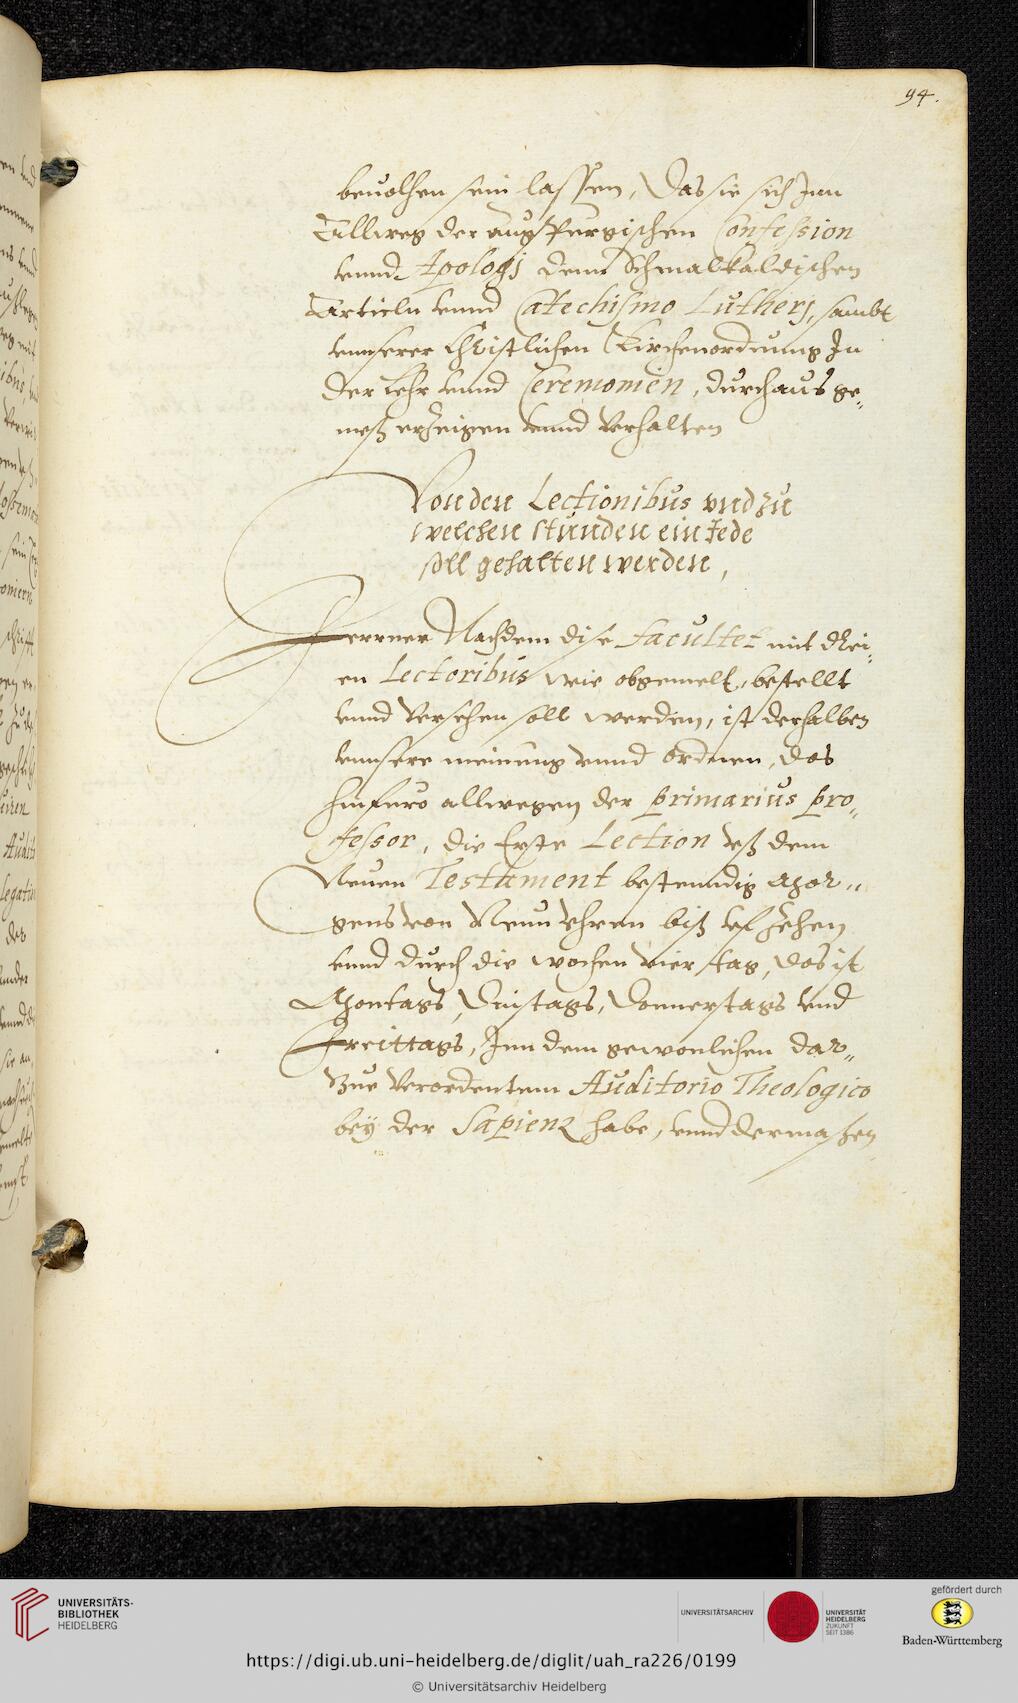 94.
beuolhen sein lassen, Das sie sich Inn
Allweg der augspurgischen Confession
vnnd Apologj denn Schmalkaldischen
Articln vnnd Catechismo Lutherj, sambt
vnnserer Christlichen Kirchenordnung In
der Lehr vnnd Ceremonien, durchaus ge„
meß erzeigen vnnd Verhalten
Von den Lectionibus vnd zu
welchen stunden ein Jede
soll gehalten werden,
Ferrner Nachdem dise Facultet mit drei„
en Lectoribus wie obgemelt, bestellt
vnnd Versehen soll werden, ist derhalben
vnnsere meinung vnnd ordnen, das
hinfuro allwegen der primarius pro„
fessor, die Erste Lection vß dem
Neuen Testament bestenndig Mor„
gens von Neun vhren biß vf Zehen
vnnd durch die wochen vier tag, das ist
Montags, Dinstags, Donnerstags vnd
Freittags, Inn dem gewonlichen dar„
Zue Verordentem Auditorio Theologico
bey der Sapienz habe, vnnd dermaßen
UNIVERSITÄTS-
BIBLIOTHEK
HEIDELBERG
UNIVERSITÄTSARCHIV
UNIVERSITÄT
HEIDELBERG
ZUKUNFT
SEIT 1386
gefördert durch
Baden-Württemberg
https://digi.ub.uni-heidelberg.de/diglit/uah_ra226/0199
© Universitätsarchiv Heidelberg